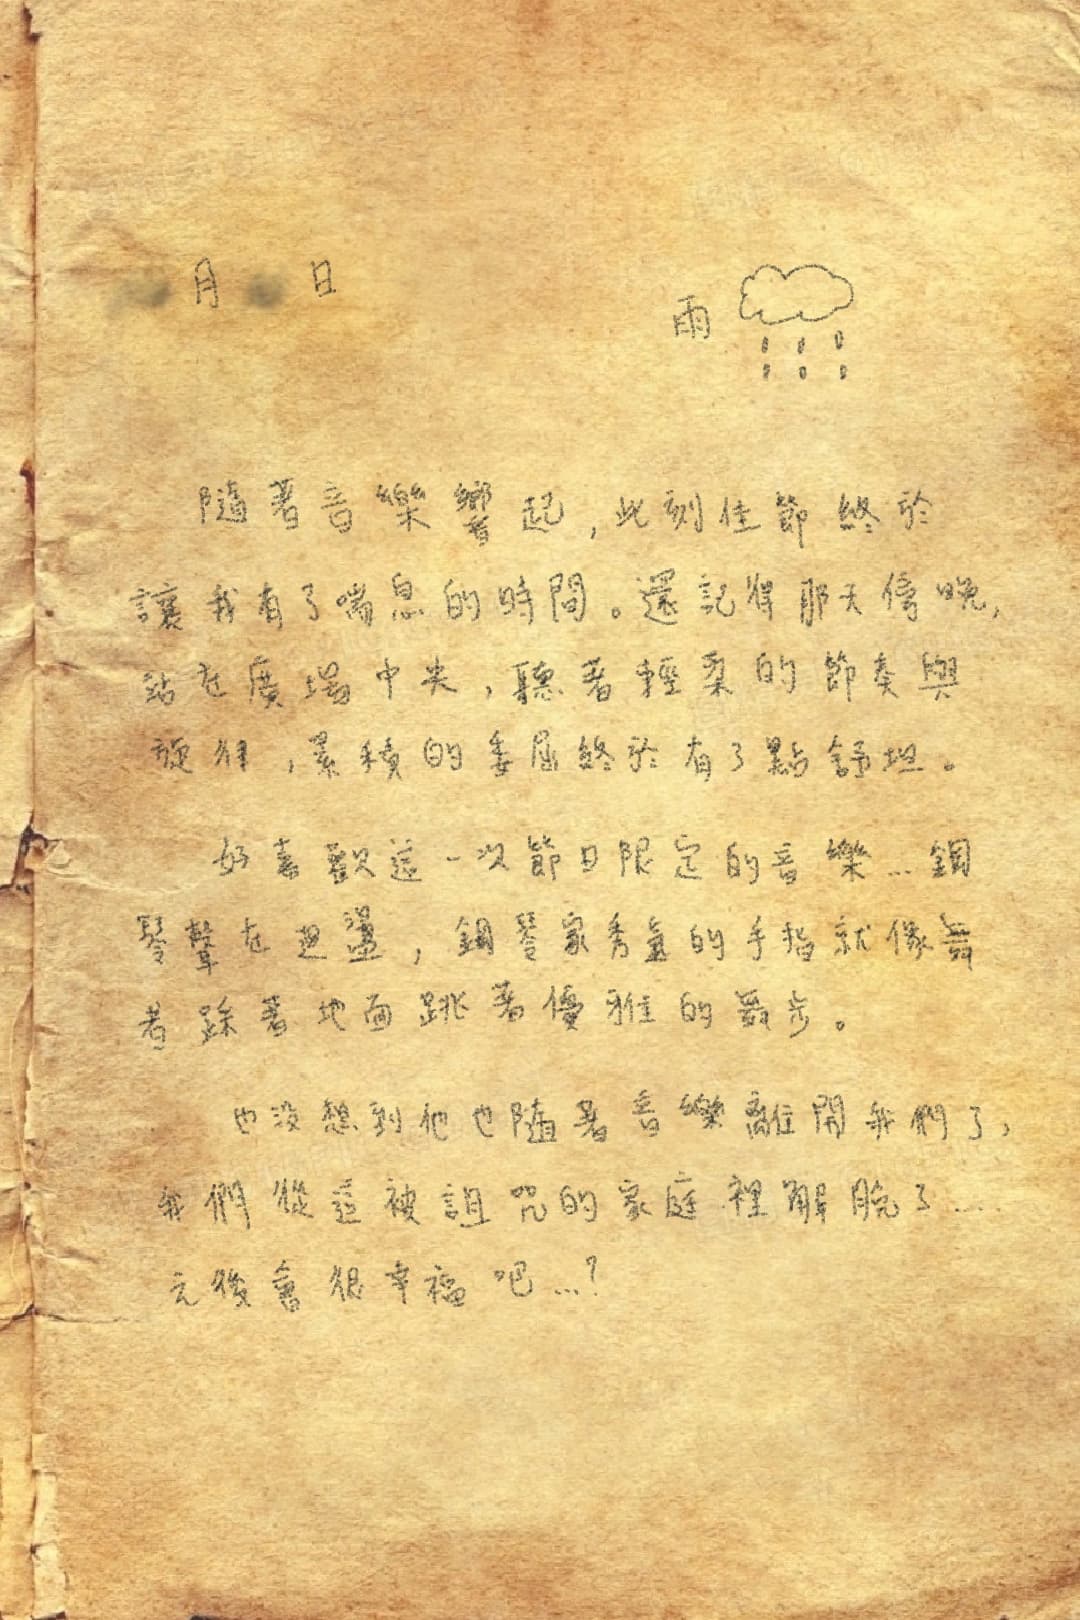 月 日
雨
隨著音樂響起,此刻佳節終於
讓我有了喘息的時間。還記得那天傍晚,
站在廣場中央,聽著輕柔的節奏與
旋律,累積的委屈終於有了點舒坦。
好喜歡這一次節日限定的音樂...鋼
琴聲在迴盪,鋼琴家秀氣的手指就像舞
者踩著地面跳著優雅的舞步。
也沒想到他也隨著音樂離開我們了,
我們從這被詛咒的家庭裡解脫了....
之後會很幸福吧...?